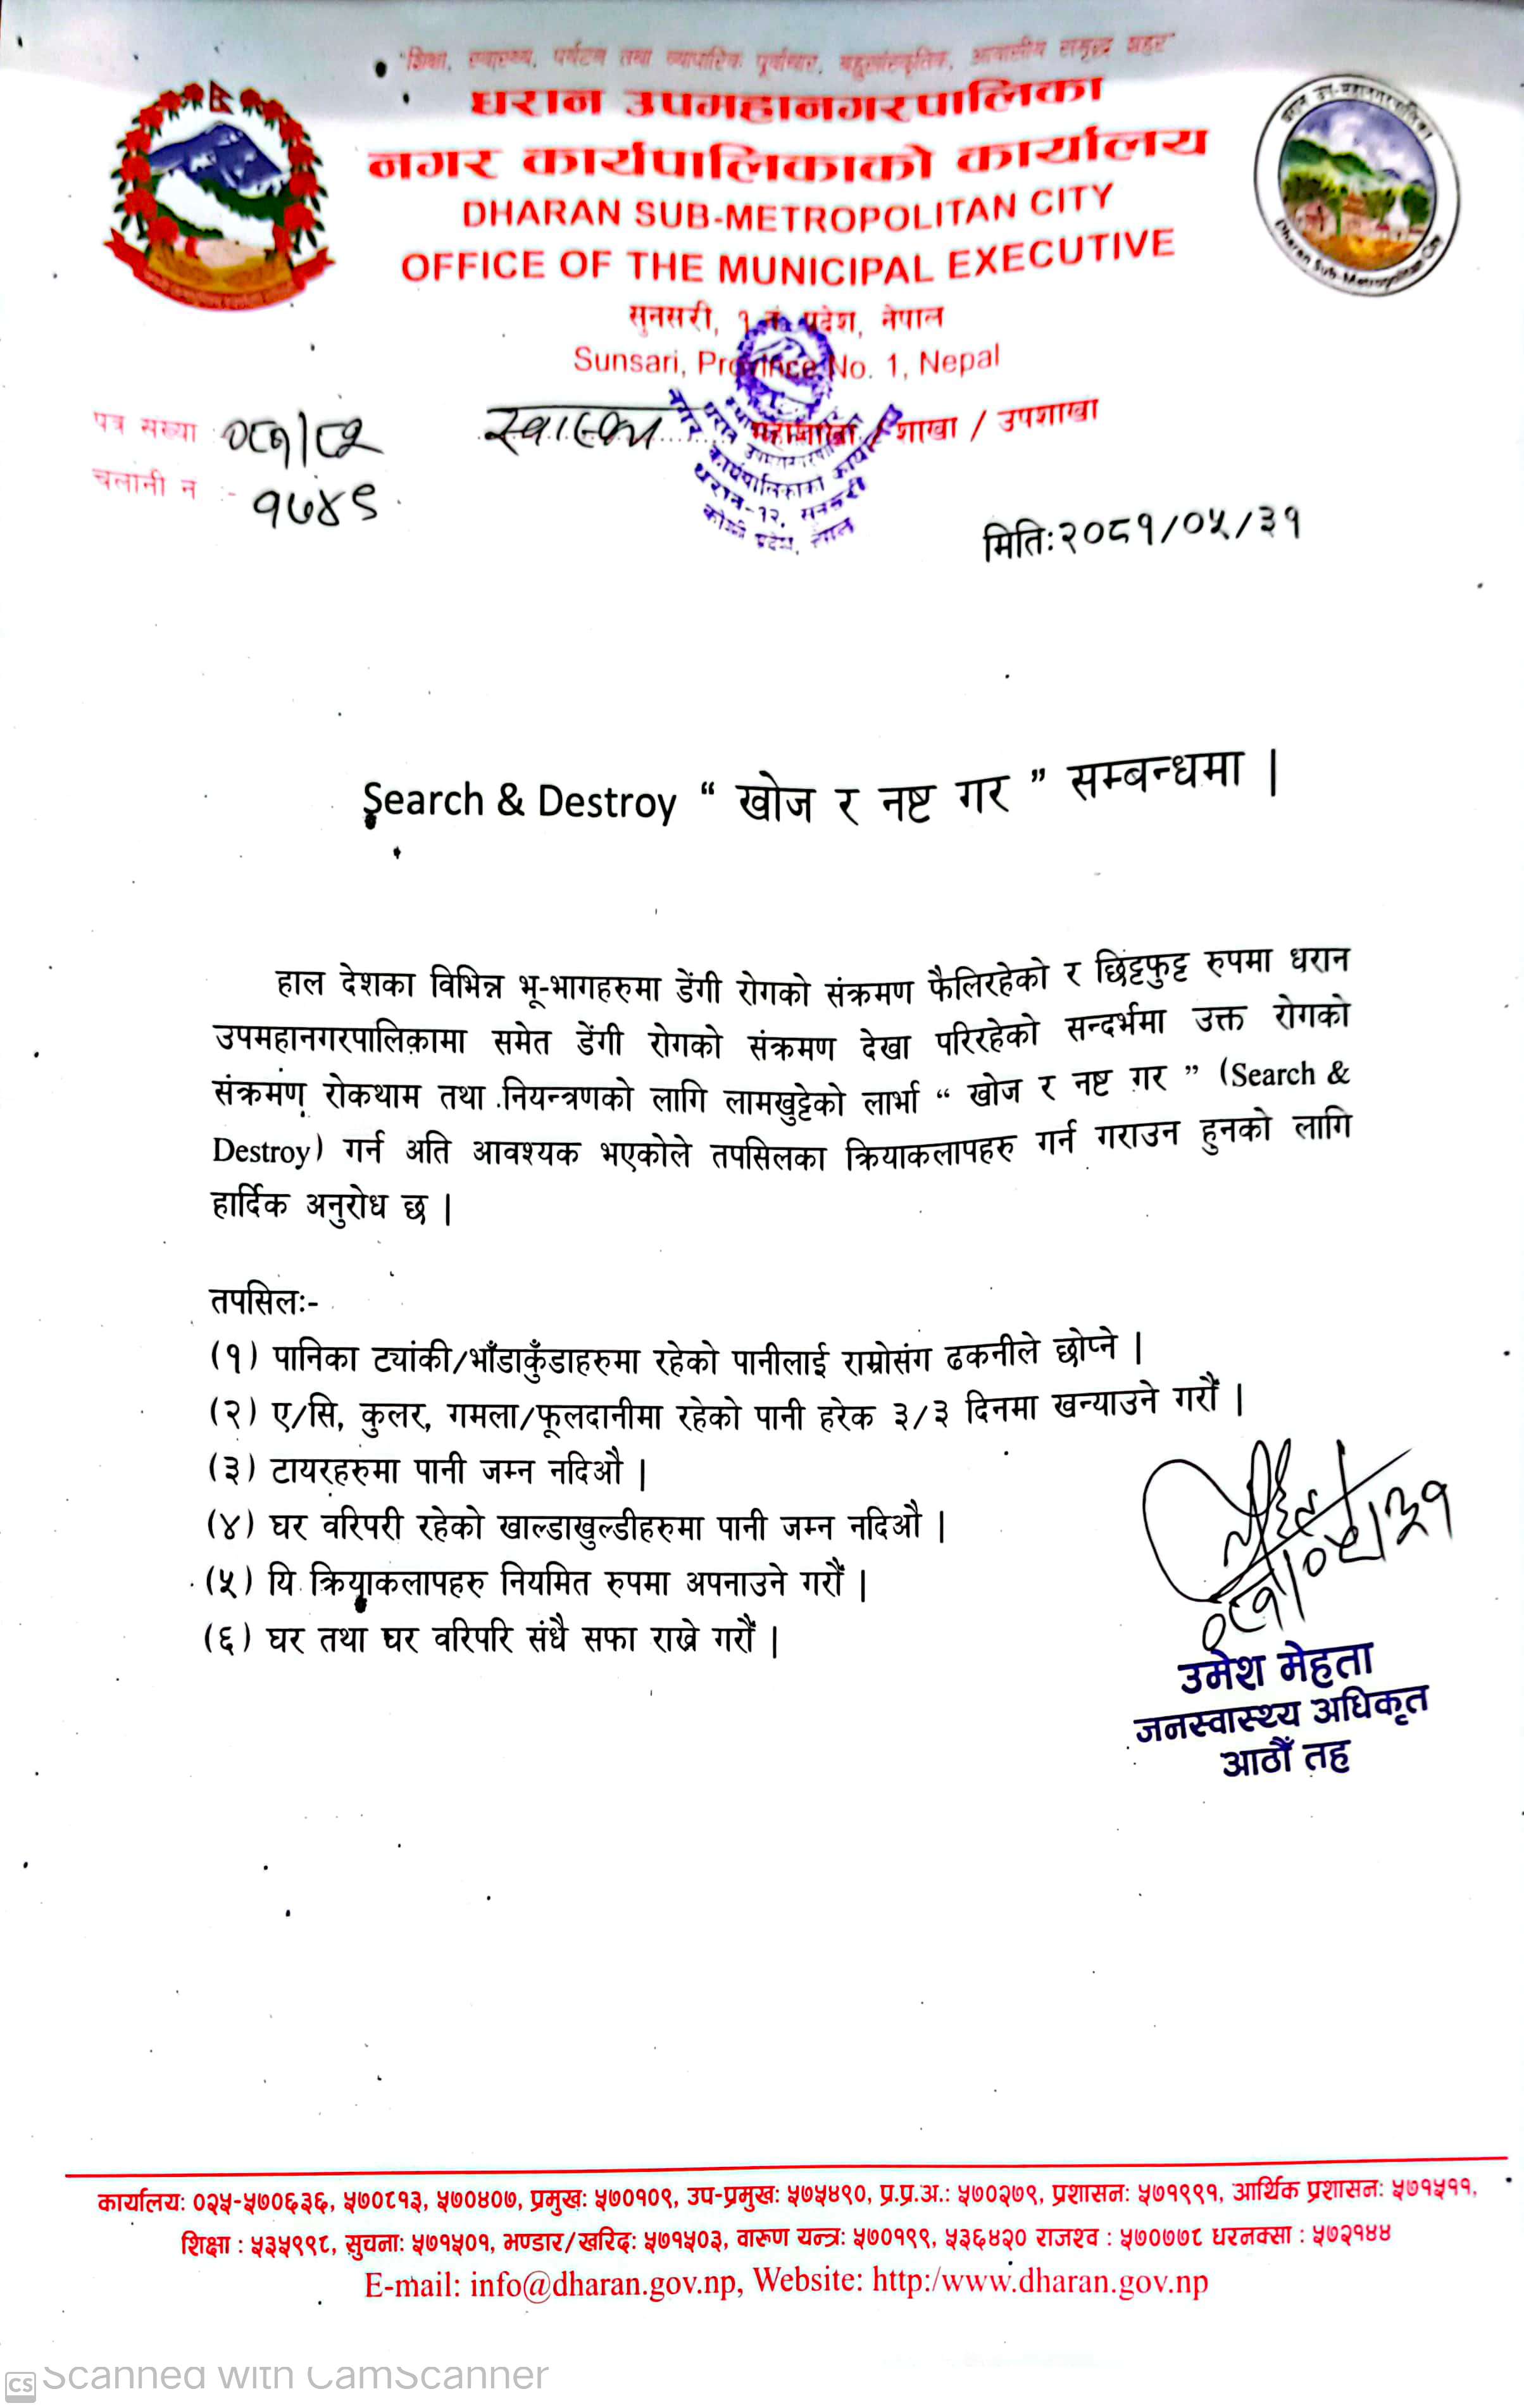 "शिक्षा, स्वास्थ्य, पर्यटन तथा व्यापारिक पूर्वाधार, बहुसांस्कृतिक, आवासीय समृद्ध शहर"
धरान उपमहानगरपालिका
नगर कार्यपालिकाको कार्यालय
DHARAN SUB-METROPOLITAN CITY
OFFICE OF THE MUNICIPAL EXECUTIVE
सुनसरी, १ नं. प्रदेश, नेपाल
Sunsari, Province No. 1, Nepal
धरान उप-महानगरपालिका
Dharan Sub-Metropolitan City
पत्र संख्या : ०८१/८२
स्वास्थ्य महाशाखा / शाखा / उपशाखा
चलानी न :- १७४९
नगर कार्यपालिकाको कार्यालय
धरान-१२, सुनसरी
कोशी प्रदेश, नेपाल
मितिः२०८१/०५/३१
Search & Destroy “ खोज र नष्ट गर ” सम्बन्धमा |
हाल देशका विभिन्न भू-भागहरुमा डेंगी रोगको संक्रमण फैलिरहेको र छिट्टफुट्ट रुपमा धरान
उपमहानगरपालिकामा समेत डेंगी रोगको संक्रमण देखा परिरहेको सन्दर्भमा उक्त रोगको
संक्रमण रोकथाम तथा नियन्त्रणको लागि लामखुट्टेको लार्भा “ खोज र नष्ट गर ” (Search &
Destroy) गर्न अति आवश्यक भएकोले तपसिलका क्रियाकलापहरु गर्न गराउन हुनको लागि
हार्दिक अनुरोध छ |
तपसिलः-
(१) पानिका ट्यांकी/भाँडाकुँडाहरुमा रहेको पानीलाई राम्रोसंग ढकनीले छोप्ने |
(२) ए/सि, कुलर, गमला/फूलदानीमा रहेको पानी हरेक ३/३ दिनमा खन्याउने गरौं |
(३) टायरहरुमा पानी जम्न नदिऔ |
(४) घर वरिपरी रहेको खाल्डाखुल्डीहरुमा पानी जम्न नदिऔ |
(५) यि क्रियाकलापहरु नियमित रुपमा अपनाउने गरौं |
(६) घर तथा घर वरिपरि संधै सफा राख्ने गरौं |
८१/०५/३१
उमेश मेहता
जनस्वास्थ्य अधिकृत
आठौं तह
कार्यालय: ०२५-५७०६३६, ५७०८१३, ५७०४०७, प्रमुख: ५७०१०९, उप-प्रमुख: ५७५४९०, प्र.प्र.अ.: ५७०२७९, प्रशासन: ५७१९९१, आर्थिक प्रशासन: ५७१५११,
शिक्षा : ५३५९९८, सुचना: ५७१५०१, भण्डार/खरिद: ५७१५०३, वारूण यन्त्र: ५७०१९९, ५३६४२० राजश्व : ५७०७७८ घरनक्सा : ५७२१४४
E-mail: info@dharan.gov.np, Website: http:/www.dharan.gov.np
CS Scanned with CamScanner